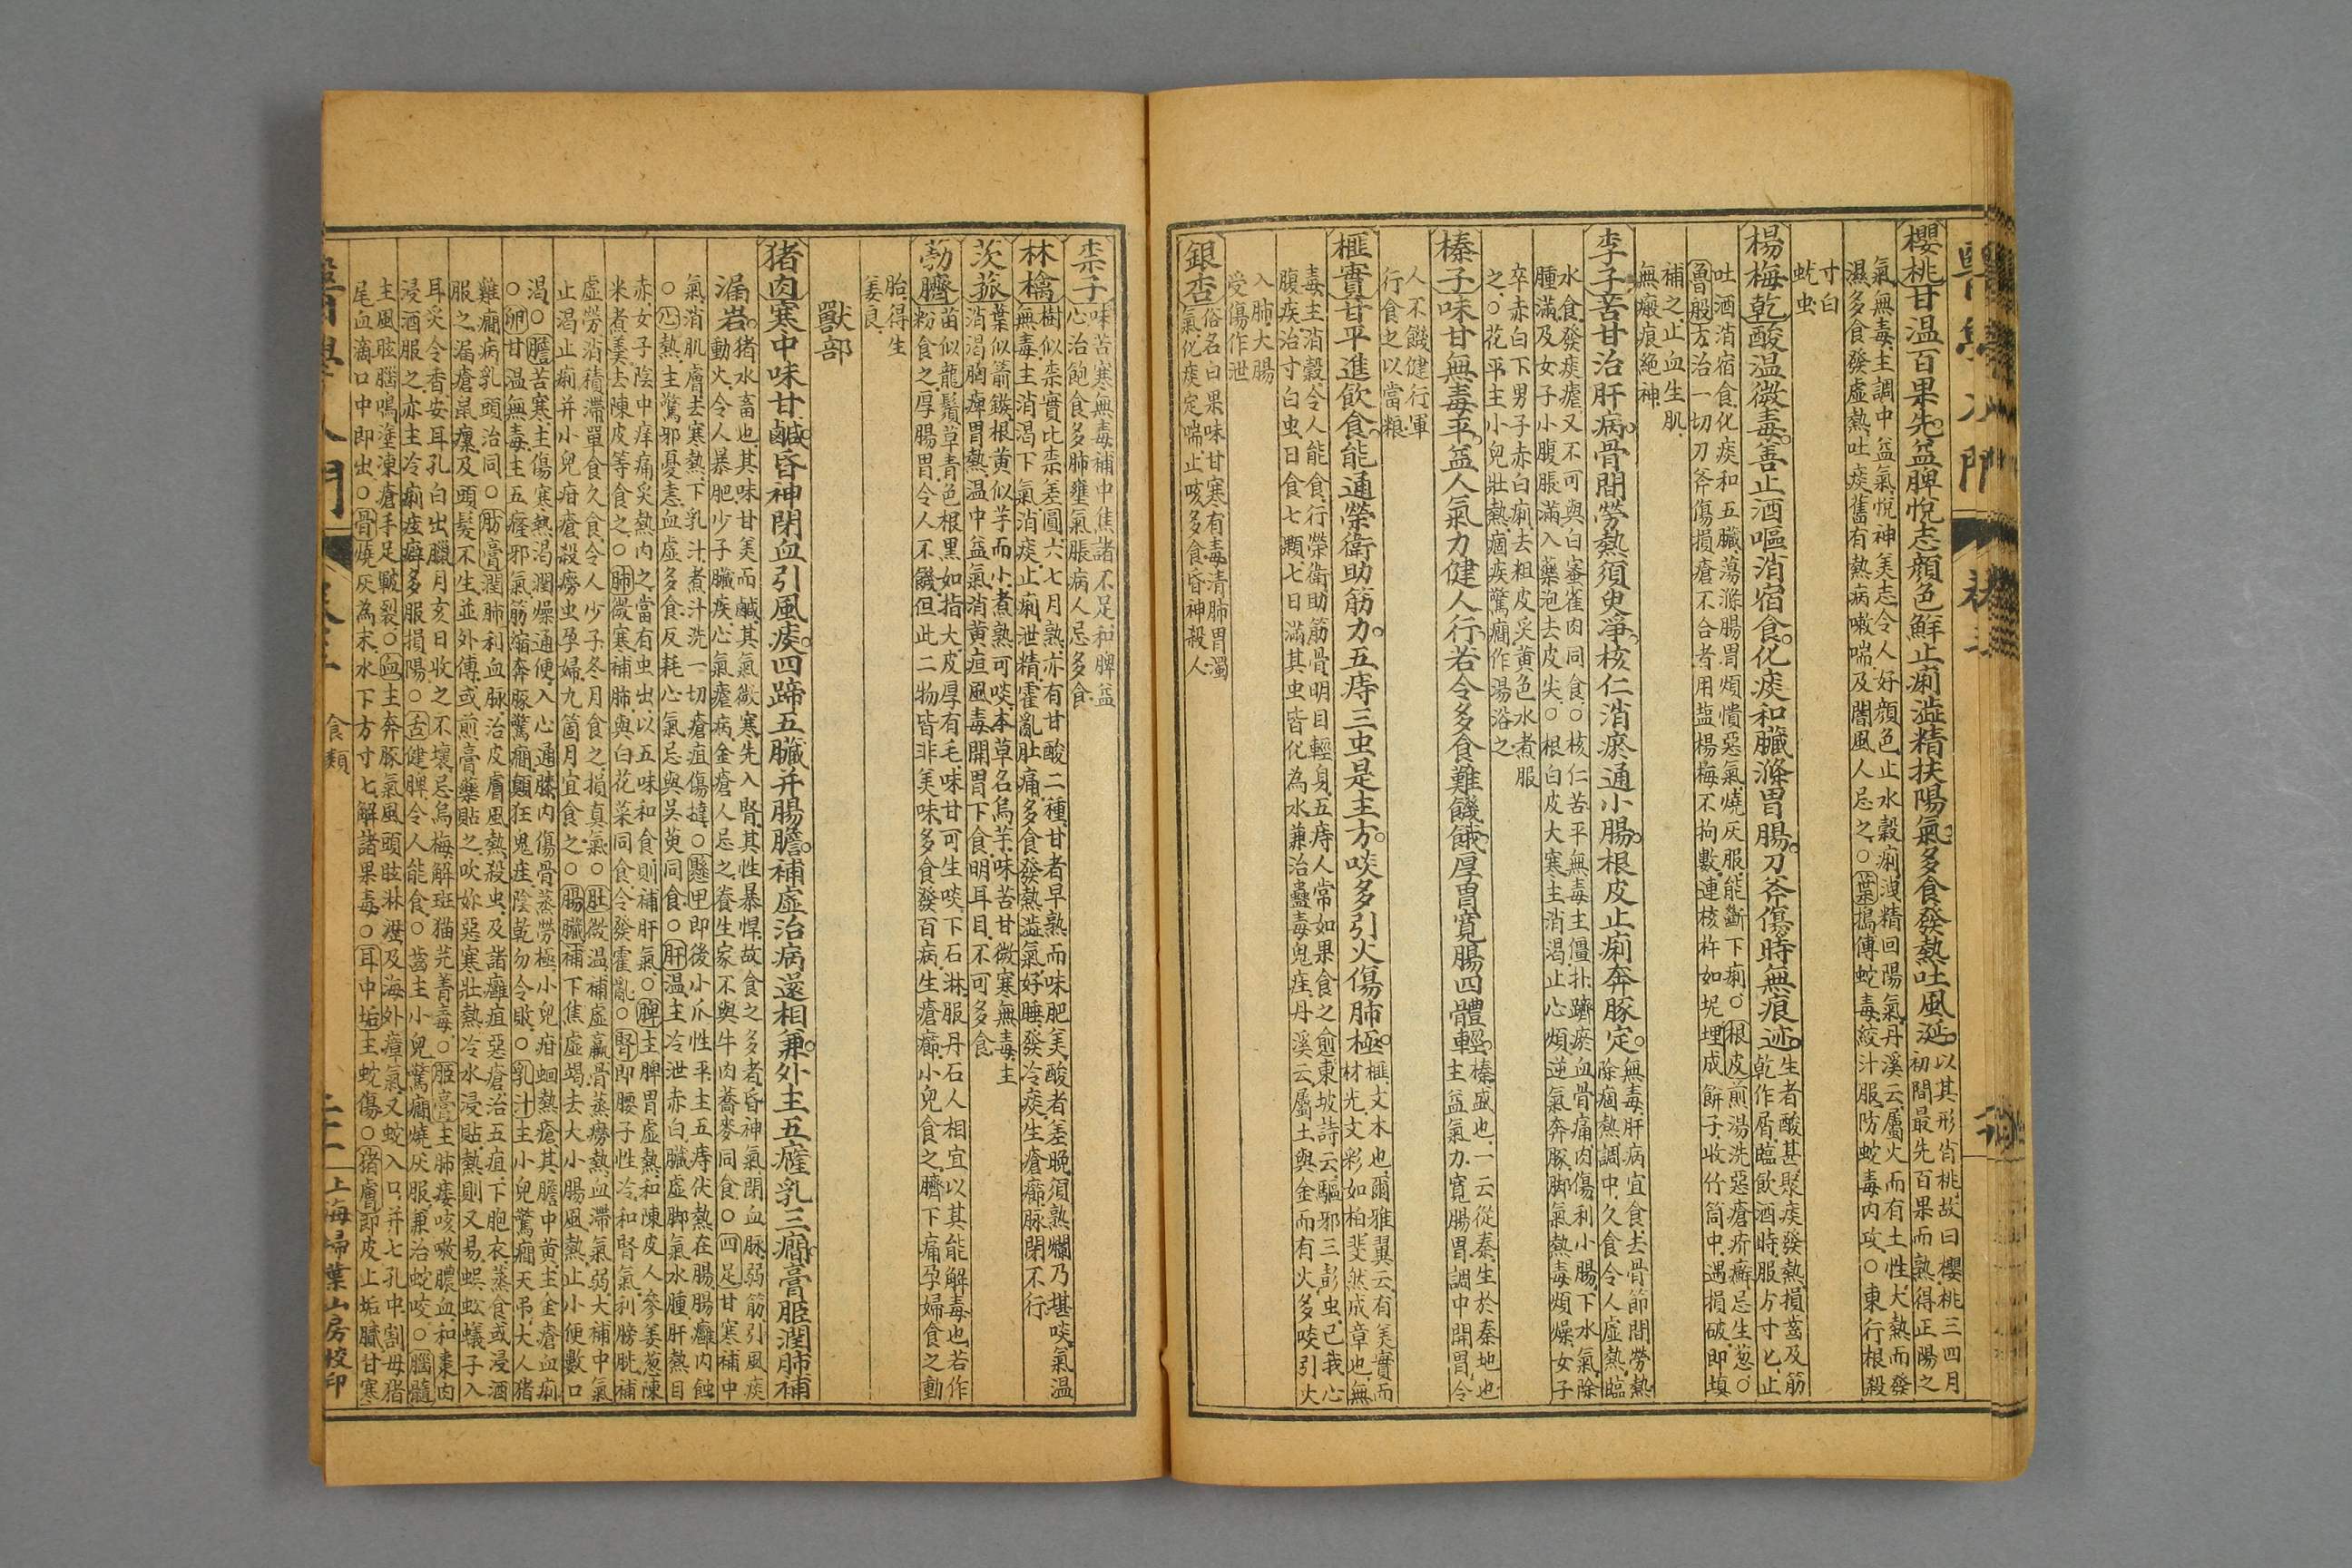 醫學入門
卷三
櫻桃甘温百果先。益脾悅志顔色鮮止痢澁精扶陽氣。多食發熱吐風涎。以其形肖桃故曰櫻桃三四月
初間最先百果而熟得正陽之
氣無毒主調中益氣悅神美志令人好顔色止水穀痢洩精回陽氣丹溪云屬火而有土性大熱而發
濕多食發虛熱吐痰舊有熱病嗽喘及闇風人忌之○葉搗傅蛇毒絞汁服防蛇毒內攻○東行根殺
寸白
蚘虫
楊梅乾酸温微毒。善止酒嘔消宿食。化痰和臟滌胃腸。刀斧傷時無痕迹。生者酸甚聚痰發熱損齒及筋
乾作屑臨飲酒時服方寸匕止
吐酒消宿食化痰和五臟蕩滌腸胃煩憒惡氣燒灰服能斷下痢○根皮煎湯洗惡瘡疥癬忌生葱○
魯般方治一切刀斧傷損瘡不合者用盐楊梅不拘數連核杵如坭埋成餅子收竹筒中遇損破即填
補之止血生肌
無瘢痕絕神
李子苦甘治肝病。骨間勞熱須臾淨。核仁消瘀通小腸。根皮止痢奔豚定。無毒肝病宜食去骨節間勞熱
除痼熱調中久食令人虛熱臨
水食發痰瘧又不可與白蜜雀肉同食○核仁苦平無毒主僵扑躋瘀血骨痛肉傷利小腸下水氣除
腫滿及女子小腹脹滿入藥泡去皮尖○根白皮大寒主消渴止心煩逆氣奔豚脚氣熱毒煩燥女子
卒赤白下男子赤白痢去粗皮炙黃色水煮服
之○花平主小兒壯熱痼疾驚癎作湯浴之
榛子味甘無毒平。益人氣力健人行。若令多食難饑餓。厚胃寬腸四體輕。榛盛也一云從秦生於秦地也
主益氣力寬腸胃調中開胃令
人不饑健行軍
行食之以當粮
榧實甘平進飲食。能通榮衛助筋力。五痔三虫是主方。啖多引火傷肺極。榧文木也爾雅翼云有美實而
材光文彩如柏斐然成章也無
毒主消穀令人能食行榮衛助筋骨明目輕身五痔人常如果食之愈東坡詩云驅邪三彭虫已我心
腹疾治寸白虫日食七顆七日滿其虫皆化為水兼治蠱毒鬼疰丹溪云屬土與金而有火多啖引火
入肺大腸
受傷作泄
銀杏俗名白果味甘寒有毒清肺胃濁
氣化痰定喘止咳多食昏神殺人
柰子味苦寒無毒補中焦諸不足和脾益
心治飽食多肺壅氣脹病人忌多食
林檎樹似柰實比柰差圓六七月熟亦有甘酸二種甘者早熟而味肥美酸者差晚須熟爛乃堪啖氣温
無毒主消渴下氣消痰止痢泄精霍亂肚痛多食發熱澁氣好睡發冷痰生瘡癤脉閉不行
茨菰葉似箭鏃根黄似芋而小煮熟可啖本草名烏芋味苦甘微寒無毒主
消渴胸痺胃熱温中益氣消黄疸風毒開胃下食明耳目不可多食
葧臍苗似龍鬚草青色根黑如指大皮厚有毛味甘可生啖下石淋服丹石人相宜以其能解毒也若作
粉食之厚腸胃令人不饑但此二物皆非美味多食發百病生瘡癤小兒食之臍下痛孕婦食之動
胎得生
姜良
獸部
猪肉寒中味甘鹹。昏神閉血引風痰。四蹄五臟并腸膽。補虛治病還相兼。外主五癃乳三癎。膏脏潤肺補
漏岩。猪水畜也其味甘美而鹹其氣微寒先入腎其性暴悍故食之多者昏神氣閉血脉弱筋引風痰
動火令人暴肥少子臟疾心氣瘧病金瘡人忌之養生家不與牛肉蕎麥同食○四足甘寒補中
氣消肌膚去寒熱下乳汁煮汁洗一切瘡疽傷撻○懸甲即後小爪性平主五痔伏熱在腸腸癰內蝕
○心熱主驚邪憂恚血虛多食反耗心氣忌與吳萸同食○肝温主冷泄赤白臟虛脚氣水腫肝熱目
赤女子陰中痒痛炙熱內之當有虫出以五味和食則補肝氣○脾主脾胃虛熱和陳皮人參姜葱陳
米煮羹去陳皮等食之○肺微寒補肺與白花菜同食令發霍亂○腎即腰子性冷和腎氣利膀胱補
虛勞消積滯單食久食令人少子冬月食之損真氣○肚微温補虛羸骨蒸癆熱血滯氣弱大補中氣
止渴止痢并小兒疳瘡殺癆虫孕婦九箇月宜食之○腸臟補下焦虛竭去大小腸風熱止小便數口
渴○膽苦寒主傷寒熱渴潤燥通便入心通膝內傷骨蒸勞極小兒疳蛔熱瘡其膽中黄主金瘡血痢
○卵甘温無毒主五癃邪氣筋縮奔豚驚癎顛狂鬼疰陰乾勿令敗○乳汁主小兒驚癎天吊大人猪
雞癎病乳頭治同○肪膏潤肺利血脉治皮膚風熱殺虫及諸癰疽惡瘡治五疸下胞衣蒸食或浸酒
服之漏瘡鼠瘻及頭髮不生並外傅或煎膏藥貼之吹妳惡寒壯熱冷水浸貼熱則又易蜈蚣蟻子入
耳炙令香安耳孔白出臘月亥日收之不壞忌烏梅解斑猫芫菁毒○脏膏主肺痿咳嗽膿血和棗肉
浸酒服之亦主冷痢疰癖多服損陽○舌健脾令人能食○齒主小兒驚癎燒灰服兼治蛇咬○腦髓
主風眩腦鳴塗凍瘡手足皸裂○血主奔豚氣風頭眩淋瀝及海外瘴氣又蛇入口并七孔中割母猪
尾血滴口中即出○骨燒灰為末水下方寸匕解諸果毒○耳中垢主蛇傷○猪膚即皮上垢臟甘寒
醫學入門
卷三
食類
二十一
上海掃葉山房校印